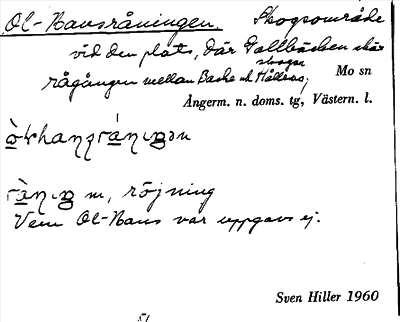 Ol-Hansråningen. Skogsområde
vid den plats, där Gallbäcken skär
rågången mellan Backe och Hållens skogar,
Mo sn
Ångerm. n. doms. tg, Västern. l.
m, röjning
Vem Ol-Hans var uppgavs ej.
Sven Hiller 1960